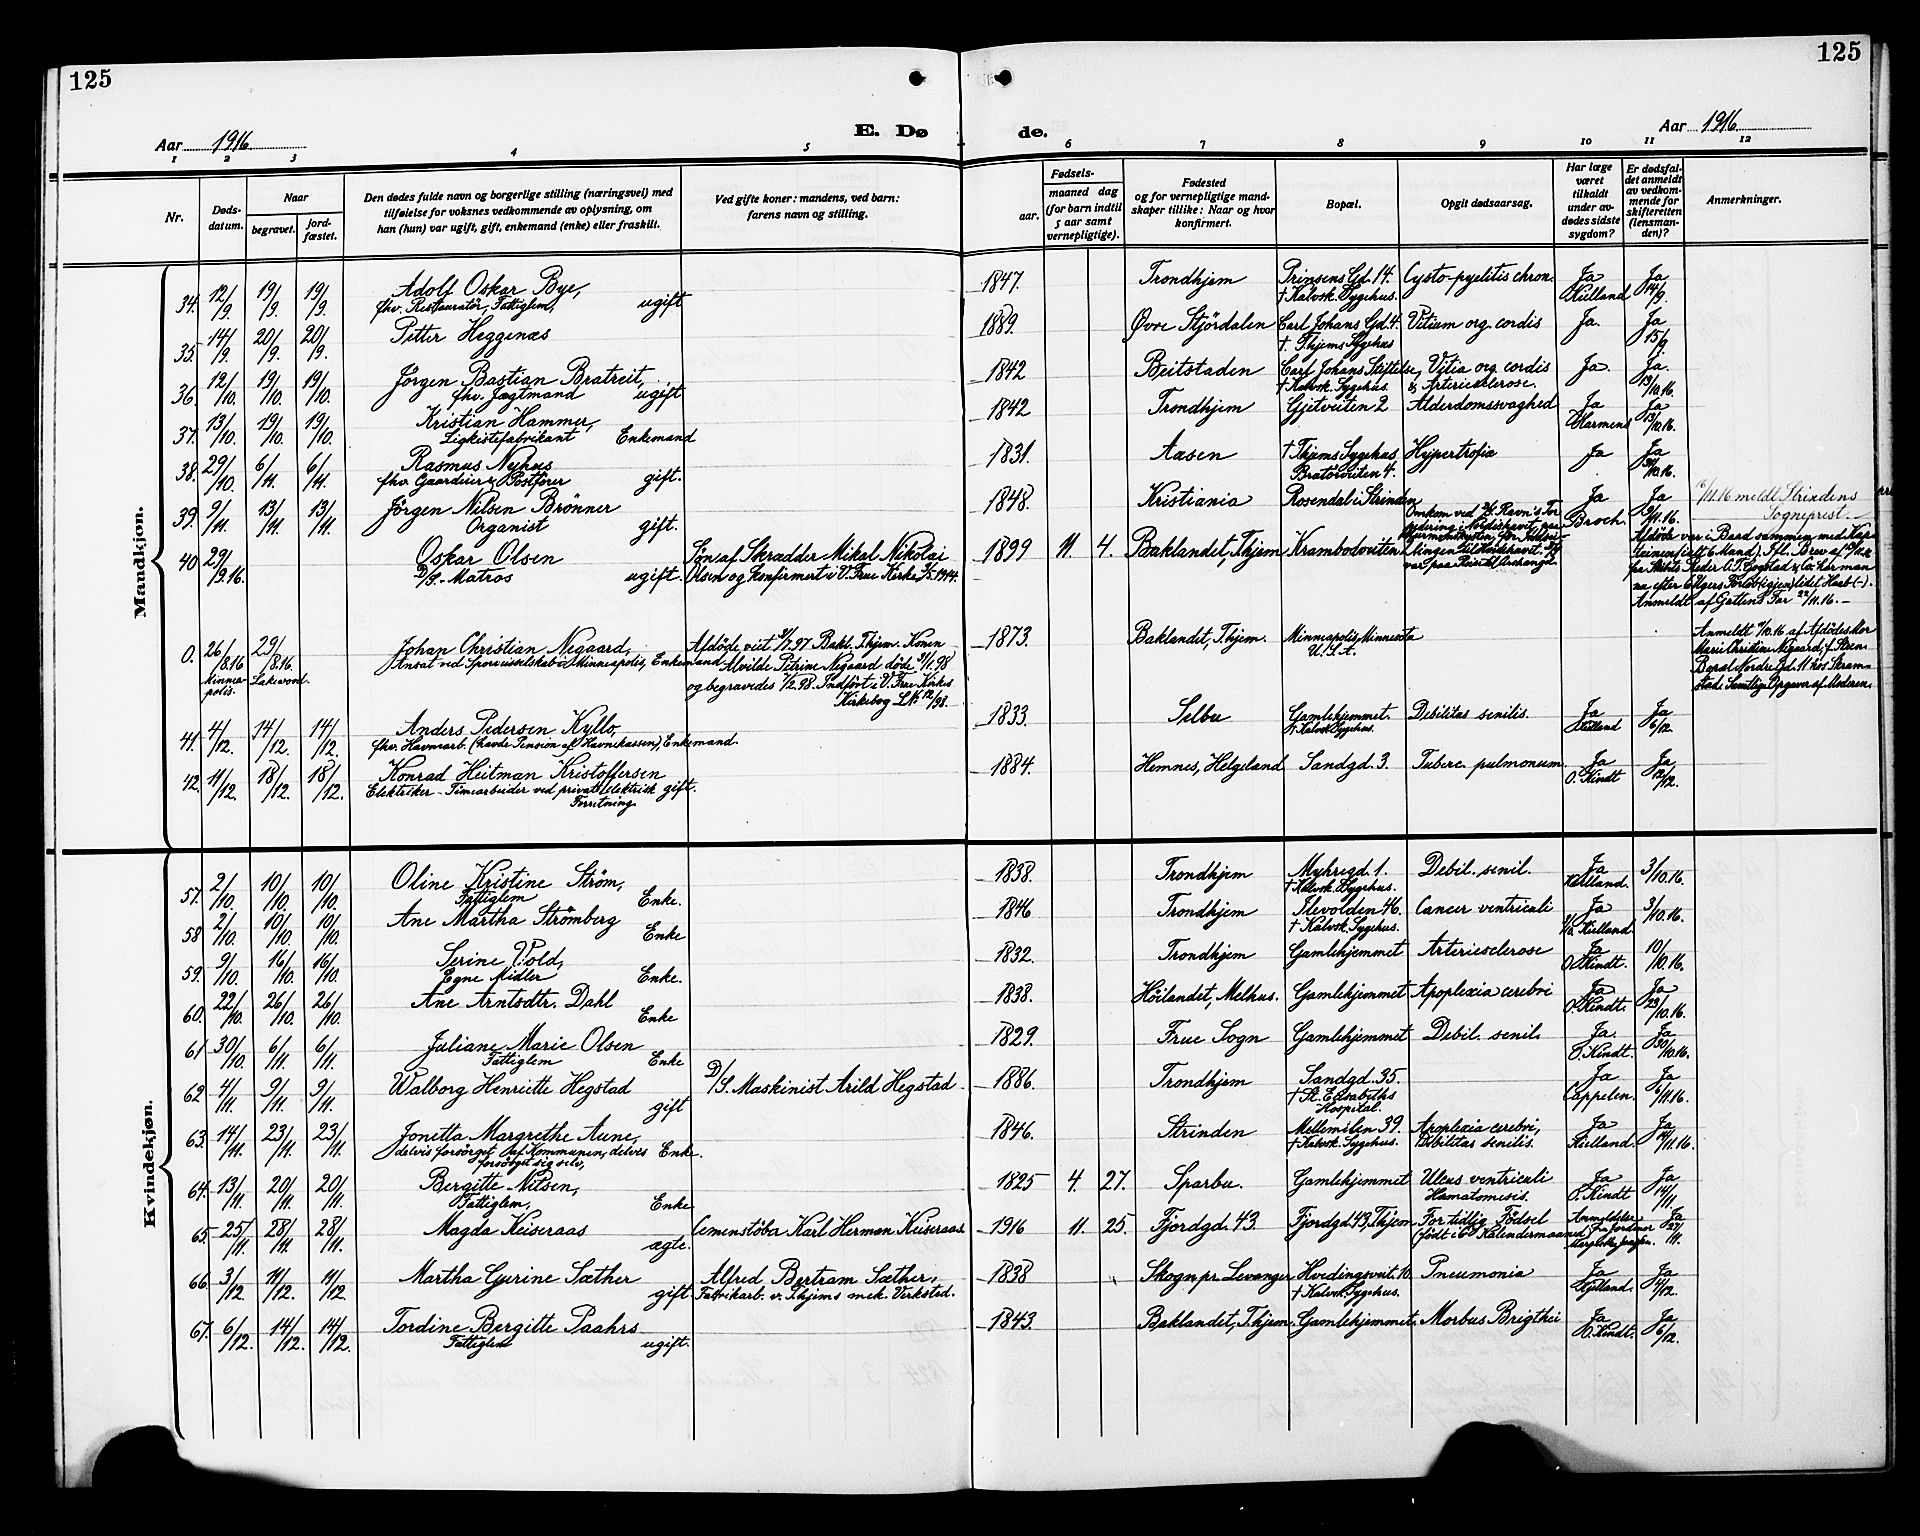 125
125
Aar 1916
E. Dø
de.
Aar 1916
1 2 3 4 5 6 7 8 9 10 11 12
Nr.
Døds-
datum.
Naar
begravet.
jord-
fæstet.
Den dødes fulde navn og borgerlige stilling (næringsvei) med
tilføielse for voksnes vedkommende av oplysning, om
han (hun) var ugift, gift, enkemand (enke) eller fraskilt.
Ved gifte koner: mandens, ved barn:
farens navn og stilling.
Fødsels-
aar.
maaned dag
(for barn indtil
5 aar samt
vernepligtige).
Fødested
og for vernepligtige mand-
skaper tillike: Naar og hvor
konfirmert.
Bopæl.
Opgit dødsaarsag.
Har læge
været
tilkaldt
under av-
dødes sidste
sygdom?
Er dødsfal-
det anmeldt
av vedkom-
mende for
skifteretten
(lensman-
den)?
Anmerkninger.
Mandkjøn.
34. 12/9. 19/9. 19/9. Adolf Oskar Bye, 1847. Trondhjem Prinsens Gd. 14. Cysto-pyelitis chron. Ja Ja
fhv. Restauratör, Fattiglem, ugift † Kalvsk. Sygehus. Kielland 14/9.
35. 14/9. 20/9. 20/9. Petter Heggenæs 1889. Øvre Stjördalen Carl Johans Gd. 4. Vitium org. cordis Ja. Ja
†. T.hjems Sygehus 15/9.
36. 12/10. 19/10. 19/10. Jörgen Bastian Bratreit, 1842 Beitstaden Carl Johans Stiftelse, Vitia org. cordis Ja. Ja.
fhv. Jægtmand ugift † Kalvsk. Sygehus. & Arteriesclerose. 13/10.16.
37. 13/10. 19/10. 19/10. Kristian Hammer, 1842 Trondhjem Gjetveiten 2 Alderdomssvaghed Ja Ja
Ligkistefabrikant Enkemand Harmens 13/10.16.
38. 29/10. 6/11. 6/11. Rasmus Nyhus 1831. Aasen † T.hjems Sygehus Hypertrofia Ja Ja
fhv. Gaardeier & Postförer gift. Bratörveiten 4. 30/10.16.
39. 9/11. 13/11. 13/11. Jörgen Nilsen Brönner 1848. Kristiania Rosendal i Strinden Ja Ja 16/11.16 meldt Strindens
Organist gift. Broch. 9/11.16. Sogneprest.
40 29/9.16. Oskar Olsen Sön af Skrædder Mikal Nikolai 1899 11. 4. Baklandet, T.hjem Krambodveiten
D/S. Matros ugift. Olsen og konfirmert i V. Frue Kirke 3/5 1914.
Omkom ved
Afdöde var i Baad sammen med Kap-
Anmeldt af Far 22/11.16.
0. 26/8.16 29/8.16. Johan Christian Negaard, Afdöde, viet 3/7.97 Bakl. T.hjem. Konen 1873. Baklandet, T.hjem. Minneapolis, Minnesota
Minnea- Lakewood. Ansat ved Sporveisselskab i Minneapolis, Enkemand Alvilde Petrine Negaard döde 31/1.98 U.S.A.
polis. og begravedes 7/2.98. Indfört i V. Frue Kirkes
Kirkebog L.N: 12/98.
Anmeldt 9/10.16 af Afdödes Mor
Marie Christine Negaard, f. Steen
Samtlige Opgaver af Moderen.
41. 4/12. 14/12. 14/12. Anders Pedersen Kyllo, 1833. Selbu Gamlehjemmet. Debilitas senilis. Ja Ja
fhv. Havnearb. (havde Pension af Havnekassen) Enkemand. † Kalvsk. Sygehus. Kielland 6/12.
42. 11/12. 18/12. 18/12. Konrad Heitman Kristoffersen 1884. Hemnes, Helgeland Sandgd. 3. Tuberc. pulmonum. Ja Ja
Elektriker - Timearbeider ved privat elektrisk gift. O. Kindt 12/12.
Forretning.
Kvindekjøn.
57. 2/10. 10/10. 10/10. Oline Kristine Ström, 1838. Trondhjem Myhregd. 1. Debil. senil. Ja 3/10.16.
Fattiglem Enke. † Kalvsk. Sygehus. Kielland.
58 2/10. 10/10. 10/10. Ane Martha Strömberg 1846 Trondhjem Ilevolden 46. Cancer ventriculi Ja 3/10.16.
Enke † Kalvsk. Sygehus. Kielland
59. 9/10. 16/10. 16/10. Serine Vold, 1832. Trondhjem Gamlehjemmet Arteriesclerose Ja 10/10.16.
Egne Midler Enke. O. Kindt.
60. 22/10. 26/10. 26/10. Ane Arntsdtr. Dahl 1838. Höilandet, Melhus. Gamlehjemmet Apoplexia cerebri Ja Ja
Enke O. Kindt. 23/10.16.
61 30/10. 6/11. 6/11. Juliane Marie Olsen 1829. Frue Sogn Gamlehjemmet Debil. senil. Ja. Ja
Fattiglem Enke O. Kindt. 30/10.16.
62 4/11. 9/11. 9/11. Walborg Henriette Hegstad D/S. Maskinist Arild Hegstad 1886. Trondhjem Sandgd. 35. Ja Ja
gift † St. Elisabeths Cappelen. 6/11.16.
Hospital.
63. 14/11. 23/11. 23/11. Jonetta Margrethe Aune, 1846. Strinden Mellemilen 39. Apoplexia cerebri, Ja Ja
delvis forsörget af Kommunen, delvis Enke. † Kalvsk. Sygehus. Debilitas senilis. Kielland. 14/11.16.
forsörget sig selv,
64. 13/11. 20/11. 20/11. Bergitte Nilsen, 1825 4. 27. Sparbu. Gamlehjemmet Ulcus ventriculi Ja Ja
Fattiglem, Enke Hæmatemesis. O. Kindt 14/11.
65. 25/11. 28/11. 28/11. Magda Keiseraas Cementstöber Karl Herman Keiseraas 1916 11. 25. Fjordgd. 43. Fjordgd. 43, T.hjem For tidlig Födsel Anmeldelse Ja
ægte. (födt i 6 Kalendermaaned) fra Jordmor 27/11.
66. 3/12. 11/12. 11/12. Martha Gurine Sæther Alfred Bertram Sæther, 1838 Skogn pr. Levanger Hvedingsveit. 10 Pneumonia Ja Ja
gift Fabrikarb. v. T.hjems mek. Verksted. † Kalvsk. Sygehus. Kjelland 4/12.
67. 6/12. 14/12. 14/12. Tordine Bergitte Paahrs 1843. Baklandet, T.hjem. Gamlehjemmet. Morbus Brigthei Ja Ja
Fattiglem ugift. O. Kindt. 6/12.